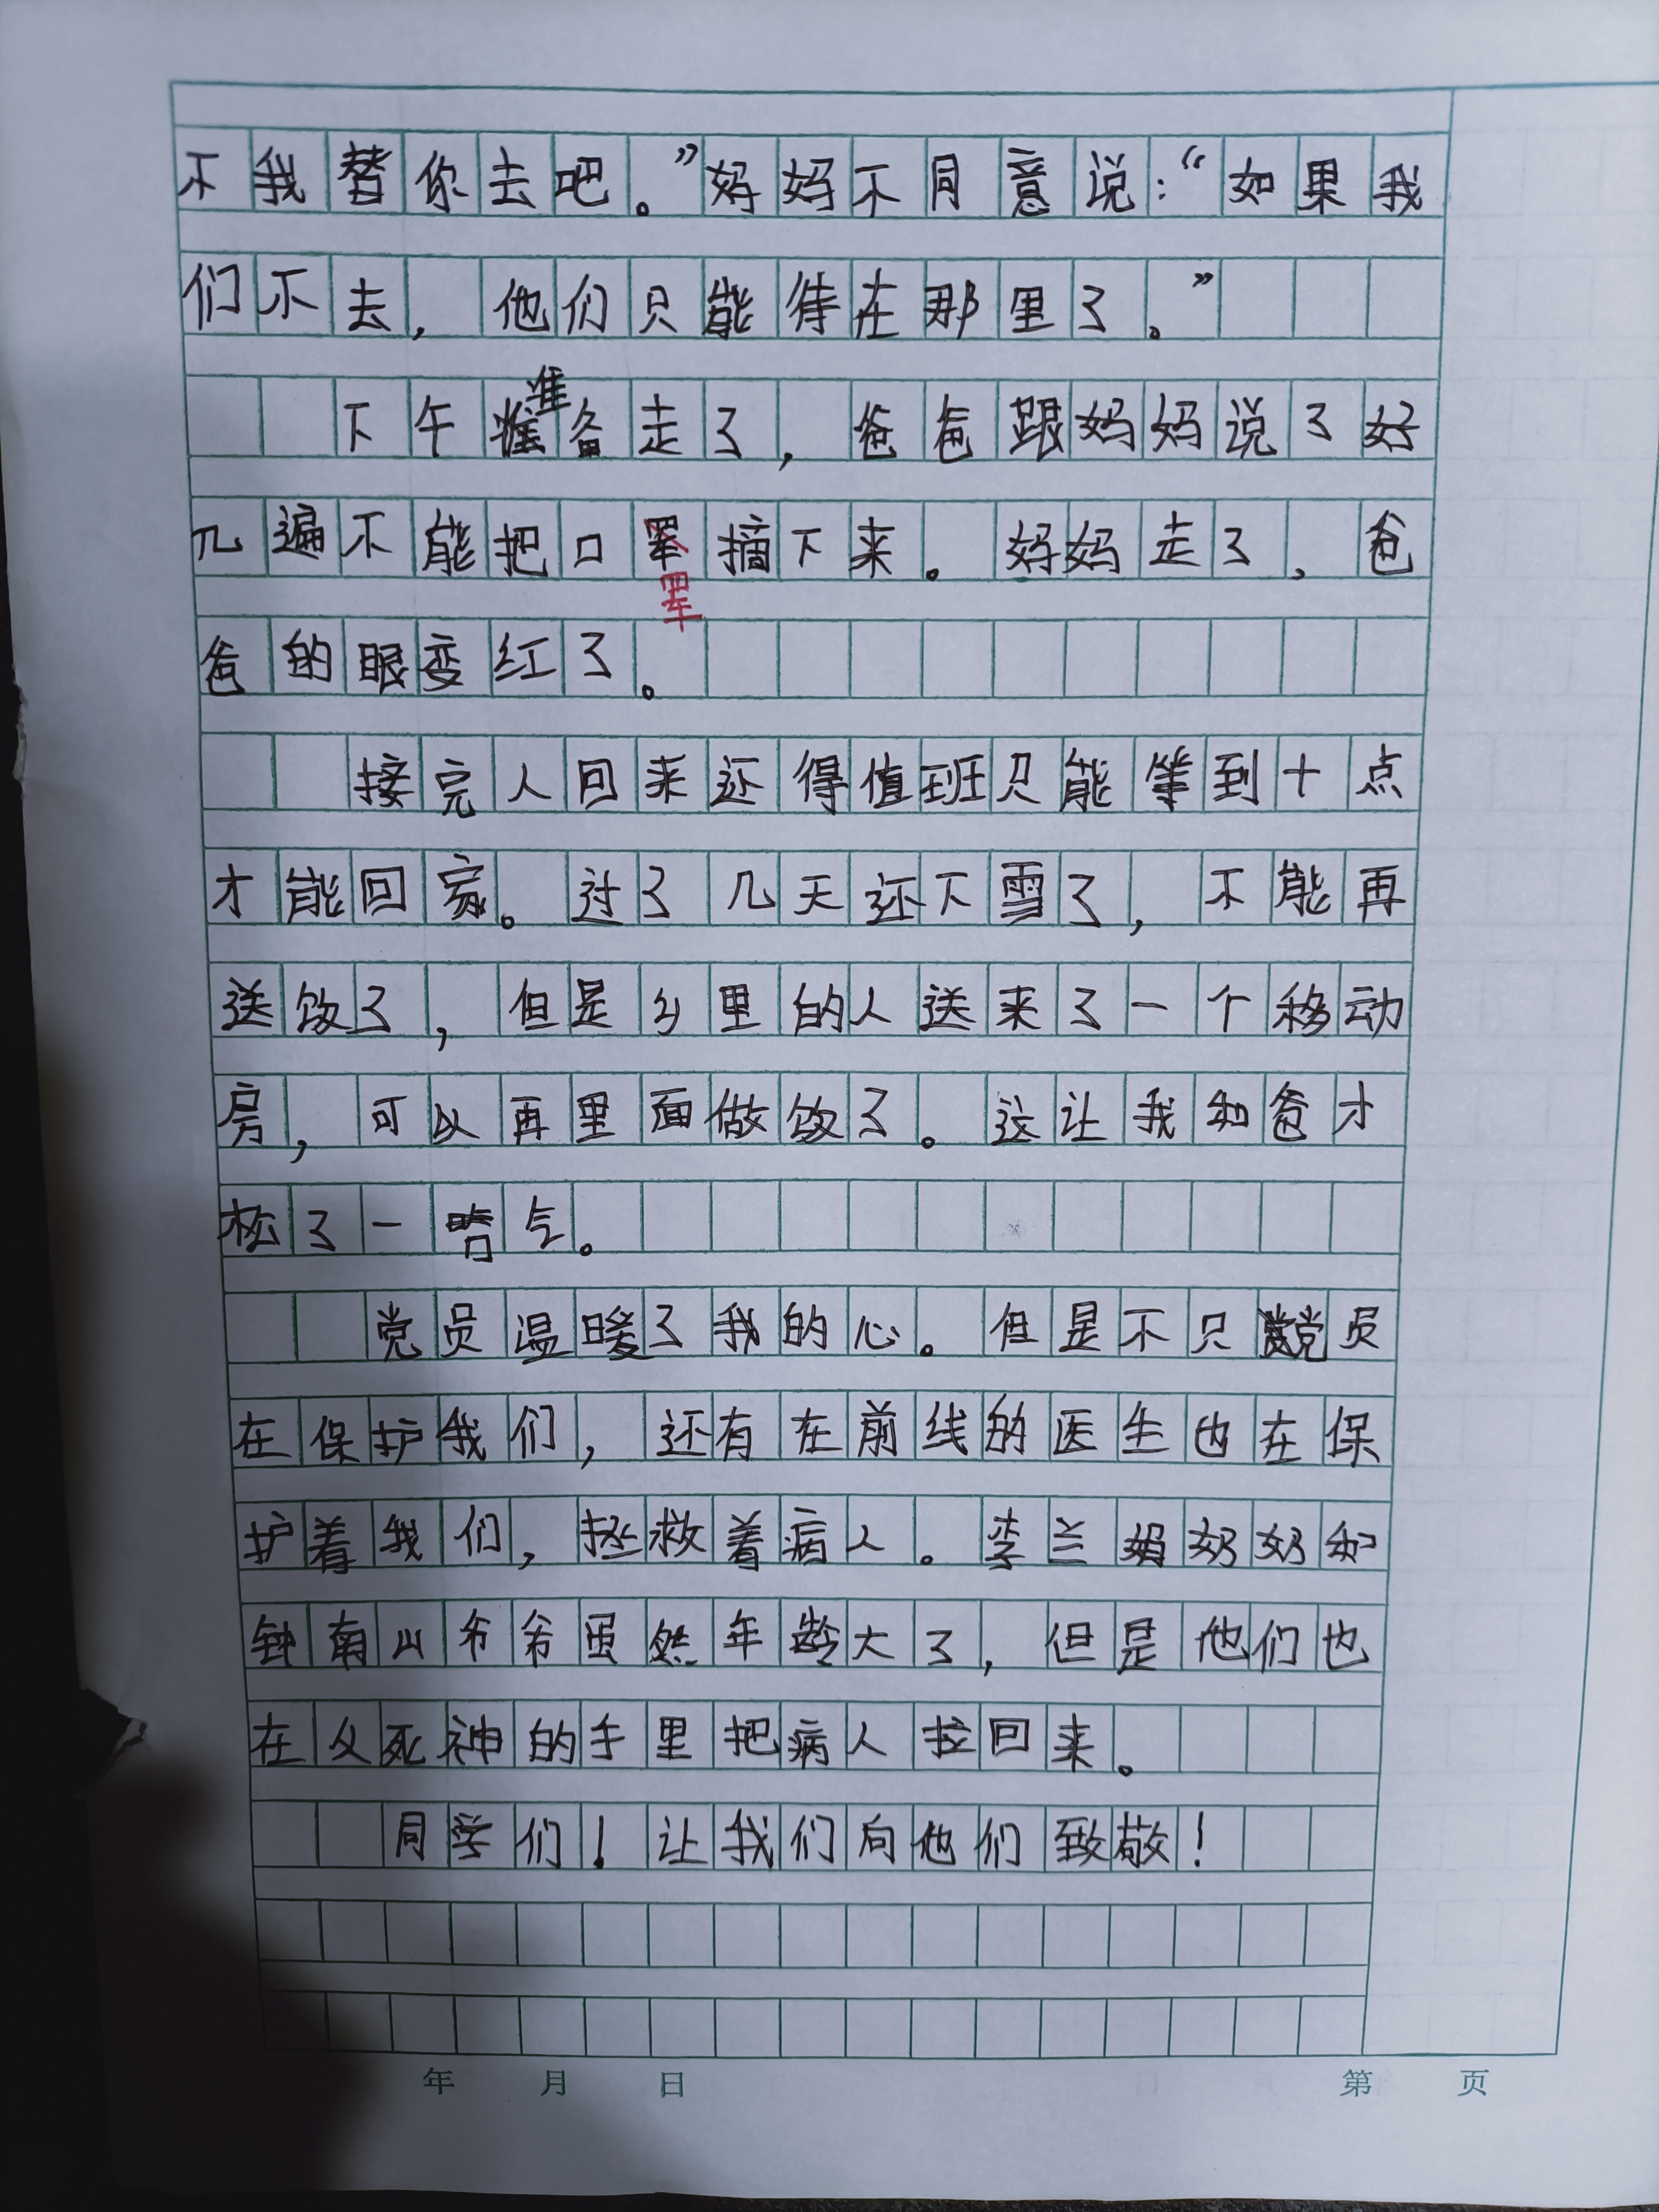 不我替你去吧。”妈妈不同意说：“如果我
们不去，他们只能待在那里了。”
准
下午准备走了，爸爸跟妈妈说了好
几遍不能把口罩摘下来。妈妈走了，爸
罩
爸的眼变红了。
接完人回来还得值班只能等到十点
才能回家。过了几天还下雪了，不能再
送饭了，但是乡里的人送来了一个移动
房，可以再里面做饭了。这让我和爸才
松了一口气。
党员温暖了我的心。但是不只党员
在保护我们，还有在前线的医生也在保
护着我们，拯救着病人。李兰娟奶奶和
钟南山爷爷虽然年龄大了，但是他们也
在从死神的手里把病人拉回来。
同学们！让我们向他们致敬！
年 月 日 第 页